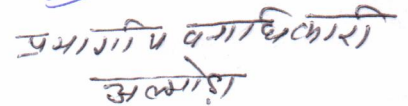 प्रभागीय वनाधिकारी
अल्मोड़ा